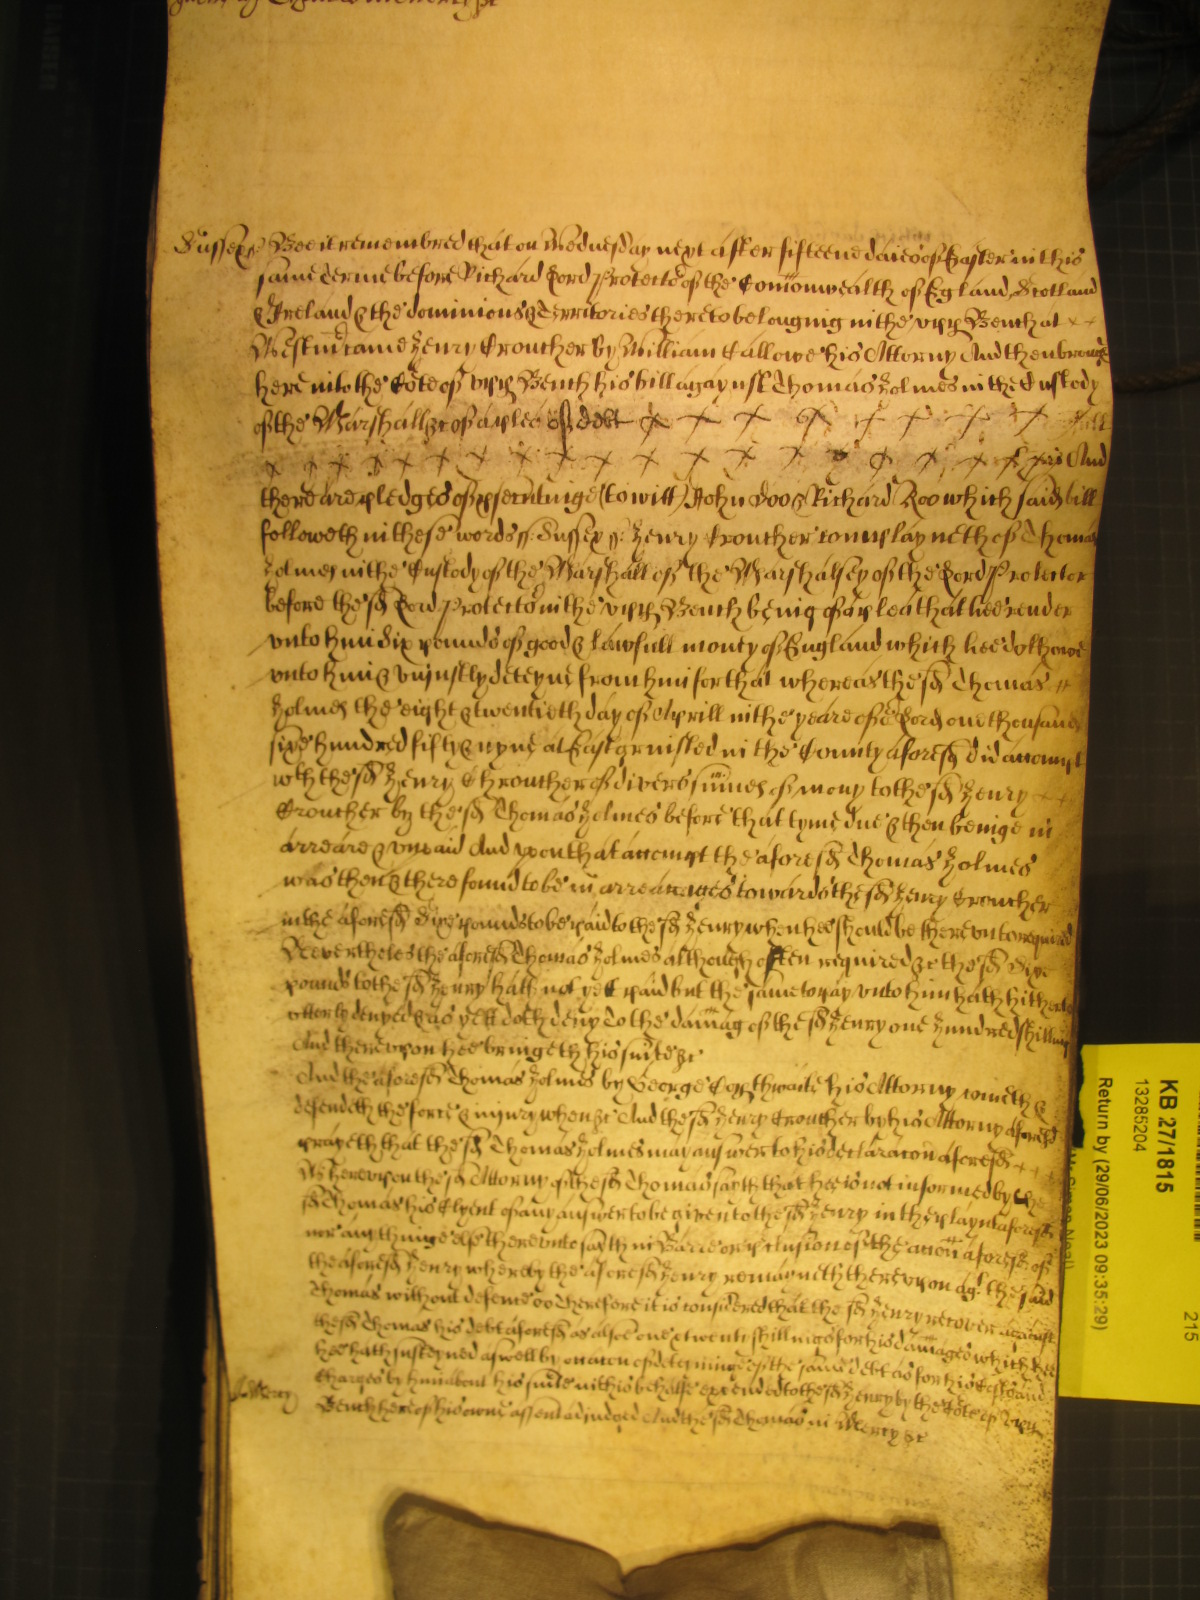 Sussex ss Bee it remembred that on Wednesday next after fifteene daies of Easter in this
same terme before Richard Lord Protector of the Comonwealth of England, Scotland
& Ireland & the dominions & Territories thereto belonging in the upp Bench at
Westm came Henry Croucher by William Callowe his Attorny And then brought
here into the Co'te of upp Bench his bill agaynst Thomas Holmes in the Custody
of the Marshall &c of a plea of debt
And
there are pledges of p'secutinge (to witt) John Doo & Richard Roo which said bill
followeth in these words ss. Sussex ss. Henry Croucher complayneth of Thomas
Holmes in the Custody of the Marshall of the Marshalsey of the Lord Protector
before the sd Lord Protector in the upp Bench being of a plea that hee render
unto him Six pounds of good & lawfull mony of England which hee doth owe
unto him & uniustly deteyne from him for that whereas the sd Thomas
Holmes the eight & twentieth day of Aprill in the yeare of or Lord one thousand
sixe hundred fifty & nyne at East grinsted in the County aforesd did accompt
wth the sd Henry Chroucher of divers sumes of mony to the sd Henry
Croucher by the sd Thomas Holmes before that tyme due & then beinge in
arreare & unpaid And upon that accompt the aforesd Thomas Holmes
was then & there found to be in arrearages towards the sd Henry Croucher
in the aforesd Sixe pounds to be paid to the sd Henry when hee should be thereunto required
Neverthelesse the aforesd Thomas Holmes although often required &c the sd Sixe
pounds to the sd Henry hath not yet paid but the same to pay unto him hath hitherto
utterly denyed & as yett doth deny To the damag of the sd Henry one hundred shillings
And thereupon hee bringeth his suite &c
And the aforesd Thomas Holmes by George Copthwaite his Attorny cometh &
defendeth the force & iniury when &c And the sd Henry Croucher by his Attorny aforesd
prayeth that the sd Thomas Holmes may answer to his declaracon aforesd
Whereupon the sd Attorny of the sd Thomas sayth that hee is not informed by the
sd Thomas his Clyent of any answer to be given to the sd Henry in the playnt aforesd
nor any thinge els thereunto sayth in Barre or p'clusion of the accon aforesd of
the aforesd Henry whereby the aforesd Henry remayneth thereupon agt the said
Thomas without defence &c Therefore it is considered that the sd Henry recover against
the sd Thomas his debt aforesd as alsoe one & twenti shillings for his damages which hee
hee hath susteyned aswell by occacon of deteyninge of the same debt as for his Costs and
Charges by him about his suite in this behalfe expended to the sd Henry by the Co'te of upp
Bench here of his owne assent adiudged And the sd Thomas in Mercy &c
Mercy
KB 27/1815
13285204
Return by (29/06/2023 09:35:29)
215